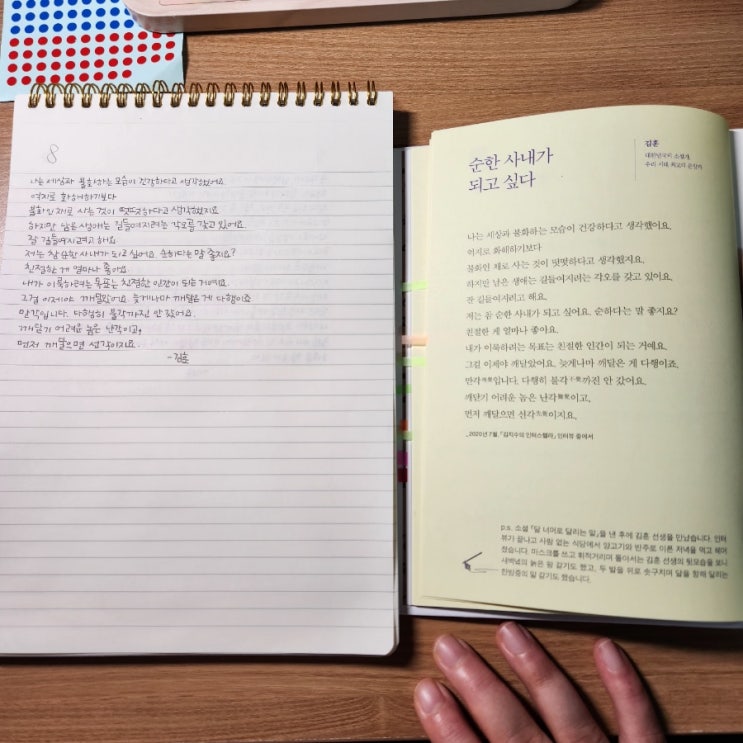 8
나는 세상과 불화하는 모습이 건강하다고 생각했어요.
억지로 화해하기보다
불화인 채로 사는 것이 떳떳하다고 생각했지요
하지만 남은 생애는 길들여지려는 각오를 갖고 있어요.
잘 길들여지려고 해요.
저는 참 순한 사내가 되고 싶어요. 순하다는 말 좋지요?
친절한 게 얼마나 좋아요.
내가 이룩하려는 목표는 친절한 인간이 되는 거예요.
그걸 이제야 깨달았어요. 늦게나마 깨달은 게 다행이죠
만각입니다. 다행히 불각까진 안 갔어요.
깨닫기 어려운 높은 난각이고,
먼저 깨달으면 선각이지요.
-김훈
순한 사내가
되고 싶다
김훈
대한민국의 소설가.
우리 시대 최고의 문장가
나는 세상과 불화하는 모습이 건강하다고 생각했어요.
억지로 화해하기보다
불화인 채로 사는 것이 떳떳하다고 생각했지요.
하지만 남은 생애는 길들여지려는 각오를 갖고 있어요.
잘 길들여지려고 해요.
저는 참 순한 사내가 되고 싶어요. 순하다는 말 좋지요?
친절한 게 얼마나 좋아요.
내가 이룩하려는 목표는 친절한 인간이 되는 거예요.
그걸 이제야 깨달았어요. 늦게나마 깨달은 게 다행이죠.
만각晩覺입니다. 다행히 불각不覺까진 안 갔어요.
깨닫기 어려운 높은 난각難覺이고,
먼저 깨달으면 선각先覺이지요.
_2020년 7월, 「김지수의 인터스텔라」 인터뷰 중에서
p.s. 소설 『달 너머로 달리는 말』을 낸 후에 김훈 선생을 만났습니다. 인터
뷰가 끝나고 사람 없는 식당에서 양고기와 반주로 이른 저녁을 먹고 헤어
졌습니다. 마스크를 쓰고 휘적거리며 돌아서는 김훈 선생의 뒷모습을 보니
새벽녘의 늙은 왕 같기도 했고, 두 발을 위로 솟구치며 달을 향해 달리는
한밤중의 말 같기도 했습니다.